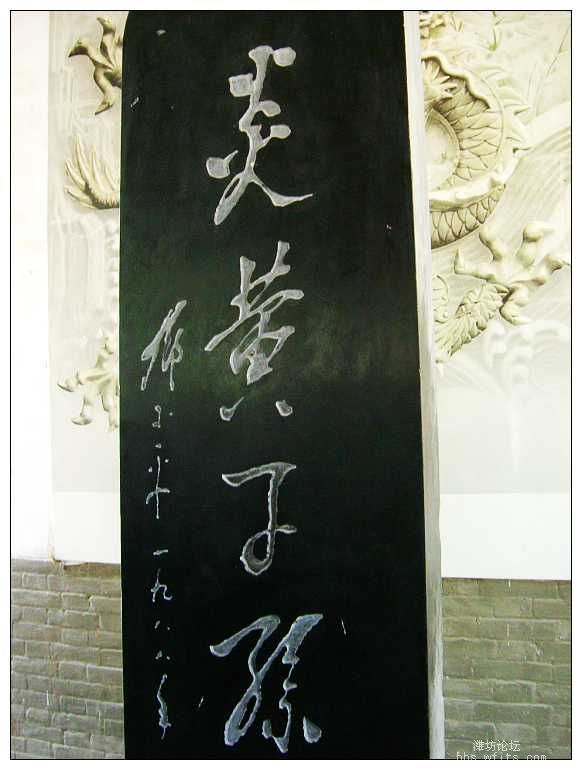 炎黄子孙
邓小平 一九八八年
潍坊论坛
bbs.wfits.com